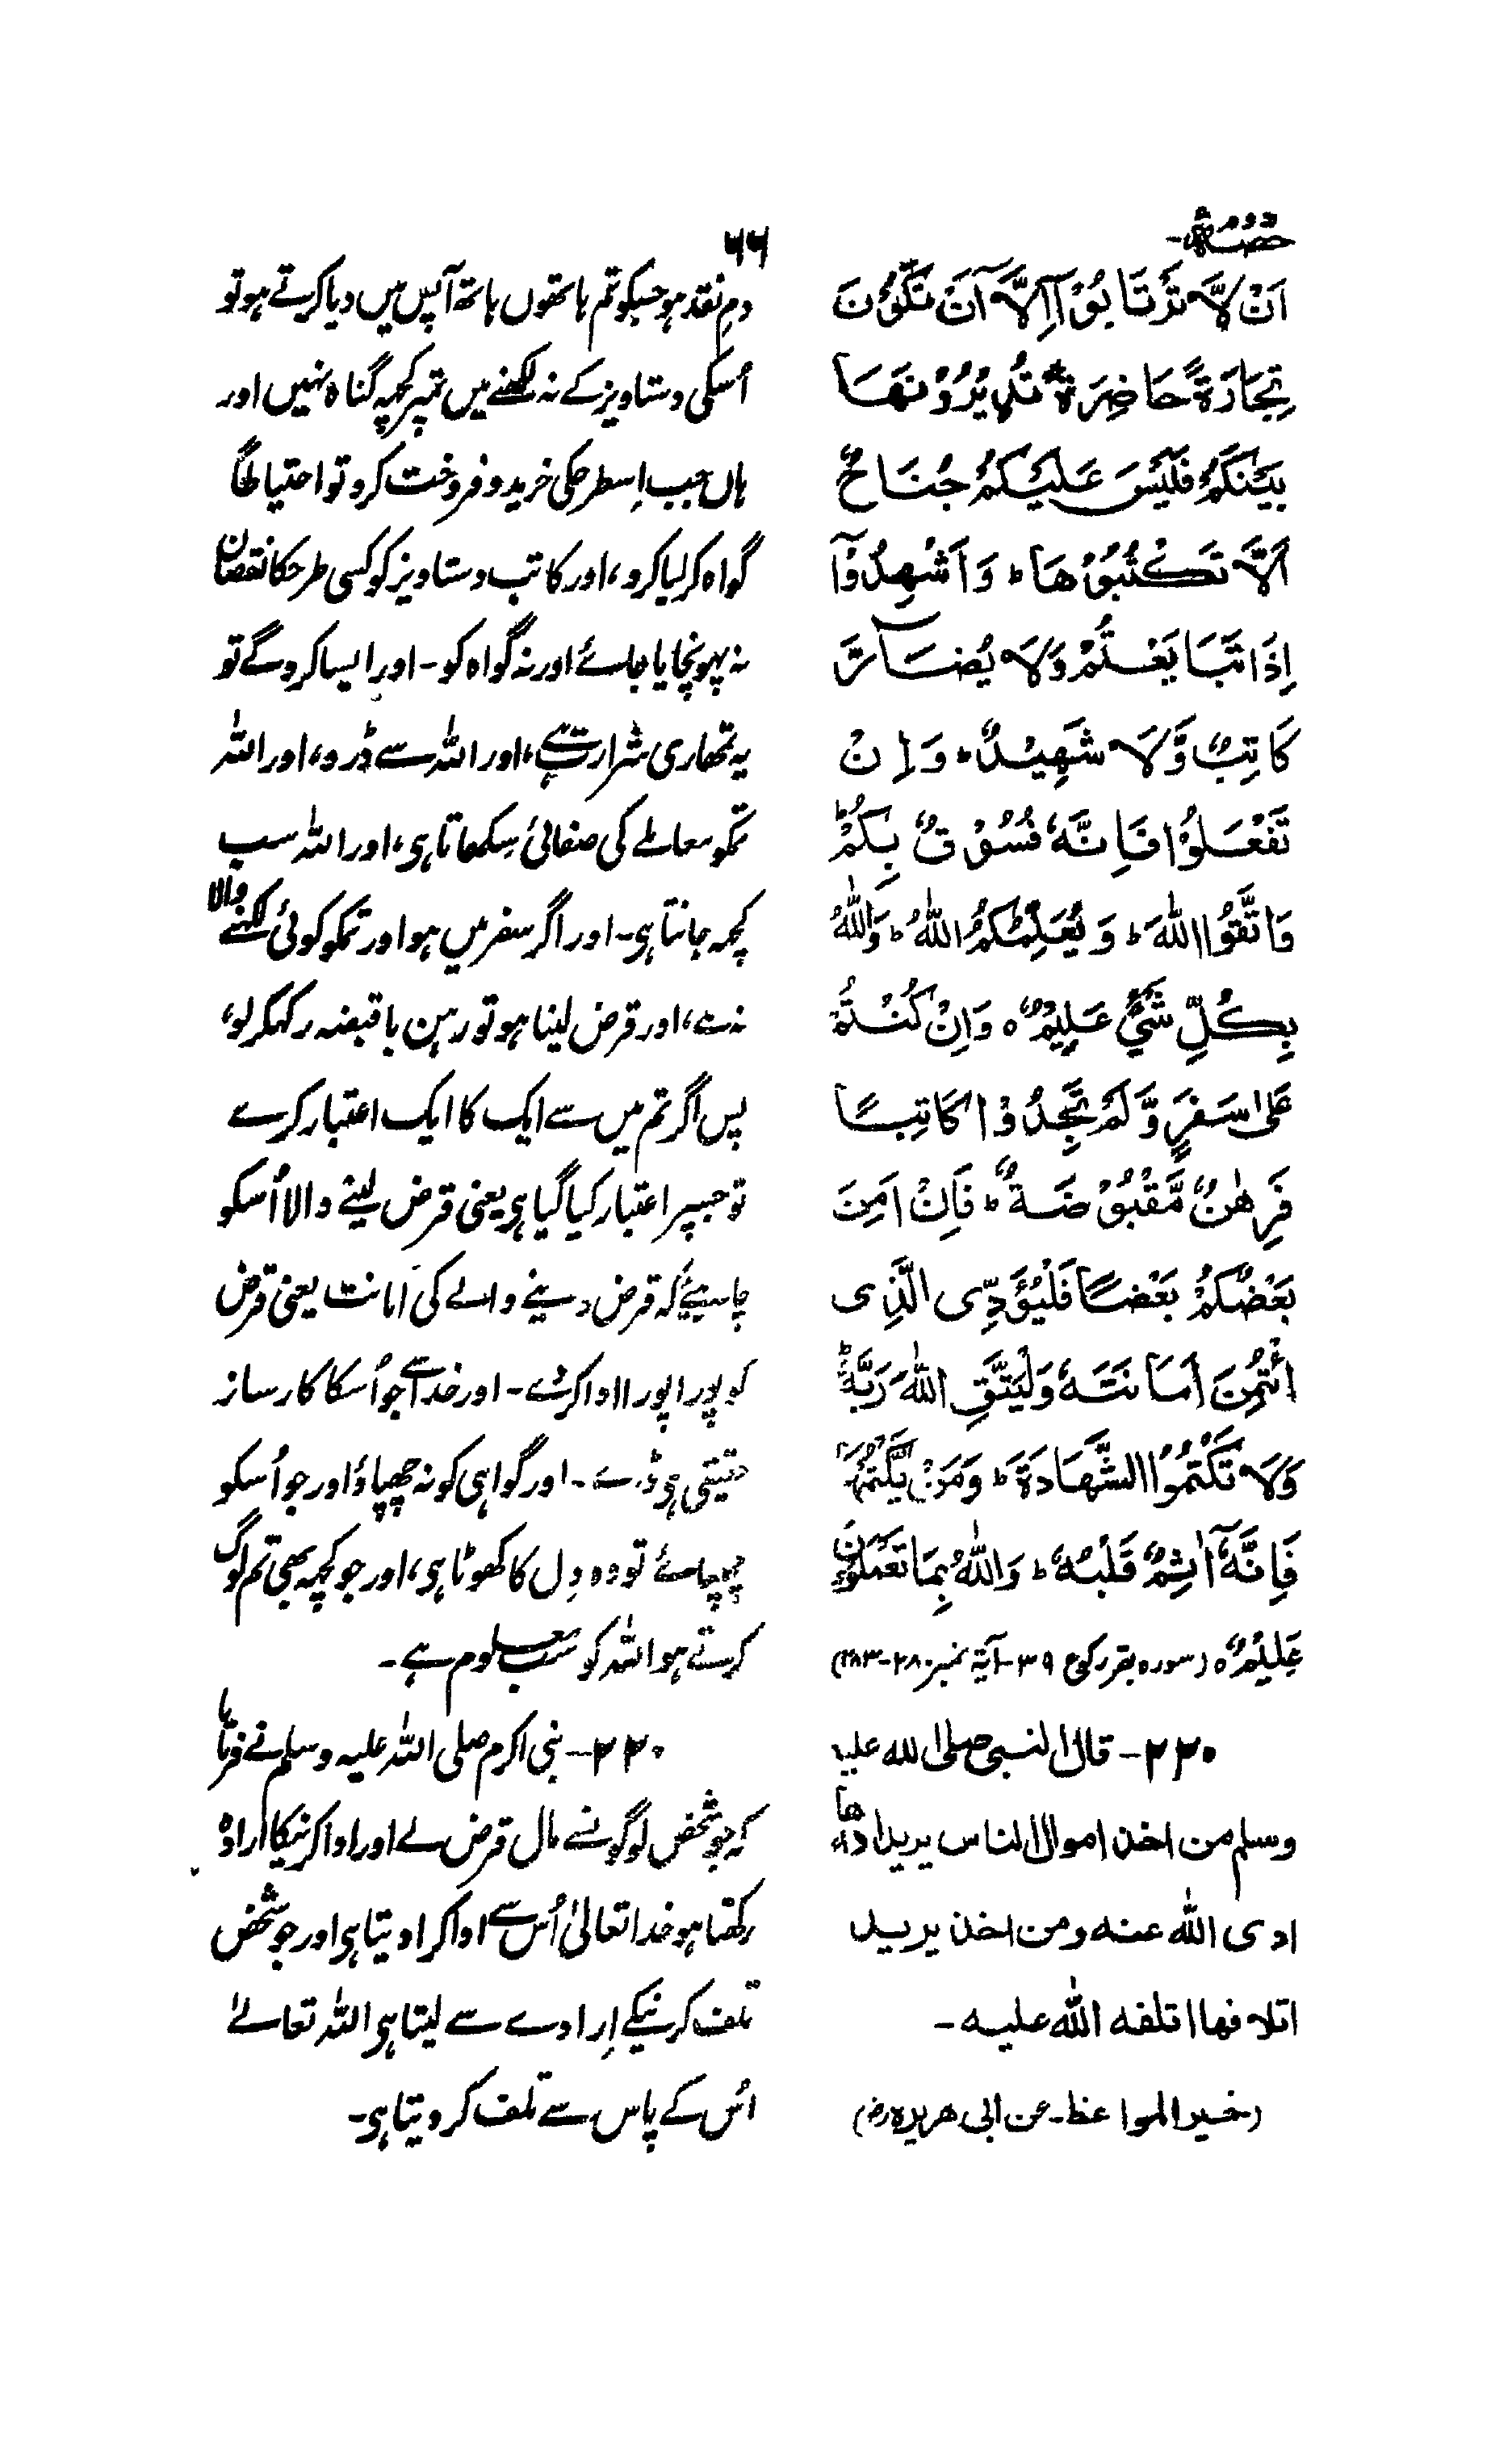 حصہ دوم -
۶۶
اَنْ لَّا تَرْتَابُوْۤا اِلَّاۤ اَنْ تَكُوْنَ
تِجَارَةً حَاضِرَةً تُدِيْرُوْنَهَا
بَيْنَكُمْ فَلَيْسَ عَلَيْكُمْ جُنَاحٌ
اَلَّا تَكْتُبُوْهَا ؕ وَاَشْهِدُوْۤا
اِذَا تَبَايَعْتُمْ وَلَا يُضَآرَّ
كَاتِبٌ وَّلَا شَهِيْدٌ ؕ وَاِنْ
تَفْعَلُوْا فَاِنَّهٗ فُسُوْقٌ بِكُمْ ؕ
وَاتَّقُوا اللّٰهَ ؕ وَيُعَلِّمُكُمُ اللّٰهُ ؕ وَاللّٰهُ
بِكُلِّ شَيْءٍ عَلِيْمٌ ۵ وَاِنْ كُنْتُمْ
عَلٰى سَفَرٍ وَّلَمْ تَجِدُوْا كَاتِبًا
فَرِهٰنٌ مَّقْبُوْضَةٌ ؕ فَاِنْ اَمِنَ
بَعْضُكُمْ بَعْضًا فَلْيُؤَدِّى الَّذِى
اؤْتُمِنَ اَمَانَتَهٗ وَلْيَتَّقِ اللّٰهَ رَبَّهٗ ؕ
وَلَا تَكْتُمُوا الشَّهَادَةَ ؕ وَمَنْ يَّكْتُمْهَا
فَاِنَّهٗۤ اٰثِمٌ قَلْبُهٗ ؕ وَاللّٰهُ بِمَا تَعْمَلُوْنَ
عَلِيْمٌ ۵ (سورہ بقر رکوع ۳۹-آیۃ نمبر ۲۸۰-۲۸۳)
۲۲۰ - قال النبی صلی الله علیہ
وسلم من اخذ اموال الناس يريد اداءها
ادى الله عنه ومن اخذ يريد
اتلافها اتلفه الله عليه -
(خیر المواعظ - عن ابی ھریرہ رض)
دمِ نقد ہو جسکو تم ہاتھوں ہاتھ آپس میں دیا کرتے ہو تو
اُسکی دستاویز کے نہ لکھنے میں تمپر کچھ گناہ نہیں اور
ہاں جب اِسطرحکی خرید و فروخت کرو تو احتیاطًا
گواہ کر لیا کرو، اور کاتب دستاویز کو کسی طرحکا نقصان
نہ پہونچایا جائے اور نہ گواہ کو - اور ایسا کرو گے تو
یہ تمھاری شرارت ہے، اور اللہ سے ڈرو، اور اللہ
تمکو معاملے کی صفائی سِکھاتا ہی، اور اللہ سب
کچھ جانتا ہی - اور اگر سفر میں ہو اور تمکو کوئی لکھنے والا
نہ ملے، اور قرض لینا ہو تو رہن با قبضہ رکھکر لو،
پس اگر تم میں سے ایک کا ایک اعتبار کرے
تو جسپر اعتبار کیا گیا ہی یعنی قرض لینے والا اُسکو
چاہیئے کہ قرض دینے والے کی اَمانت یعنی قرض
کو پورا پورا ادا کر دے - اور خدا سے جو اُسکا کارساز
حقیقی ہی ڈرے - اور گواہی کو نہ چھپاؤ اور جو اُسکو
چھپائے تو وہ دِل کا کھوٹا ہی، اور جو کچھ بھی تم لوگ
کرتے ہو اللہ کو سب معلوم ہے -
۲۲۰ - نبی اکرم صلی اللہ علیہ وسلم نے فرمایا
کہ جو شخص لوگونسے مال قرض لے اور ادا کرنیکا ارادہ
رکھتا ہو خدا تعالیٰ اُس سے ادا کرا دیتا ہی اور جو شخص
تلف کرنیکے اِرادے سے لیتا ہی اللہ تعالےٰ
اُس کے پاس سے تلف کر دیتا ہی -